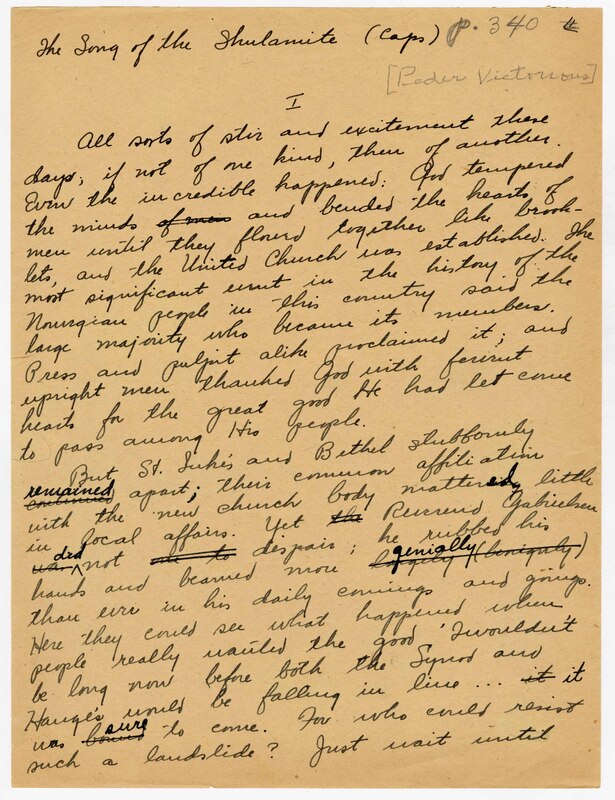 The Song of the Shulamite (Caps) p. 340
[Peder Victorious]
I
All sorts of stir and excitement these
days; if not of one kind, then of another.
Even the incredible happened: God tempered
the minds of men and bended the hearts of
men until they flowed together like brook-
lets, and the United Church was established. The
most significant event in the history of the
Norwegian people in this country said the
large majority who became its members.
Press and pulpit alike proclaimed it; and
upright men thanked God with fervent
hearts for the great good He had let come
to pass among His people.
But St. Luke's and Bethel stubbornly
remained continued apart; their common affiliation
with the new church body mattered little
in local affairs. Yet the Reverend Gabrielsen
was did not despair; he rubbed his
hands and beamed more genially (benignly)
than ever in his daily comings and goings.
Here they could see what happened when
people really wanted the good 'Twouldn't
be long now before both the Synod and
Hauge's would be falling in line ... it it
was bound sure to come. For who could resist
such a landslide? Just wait until